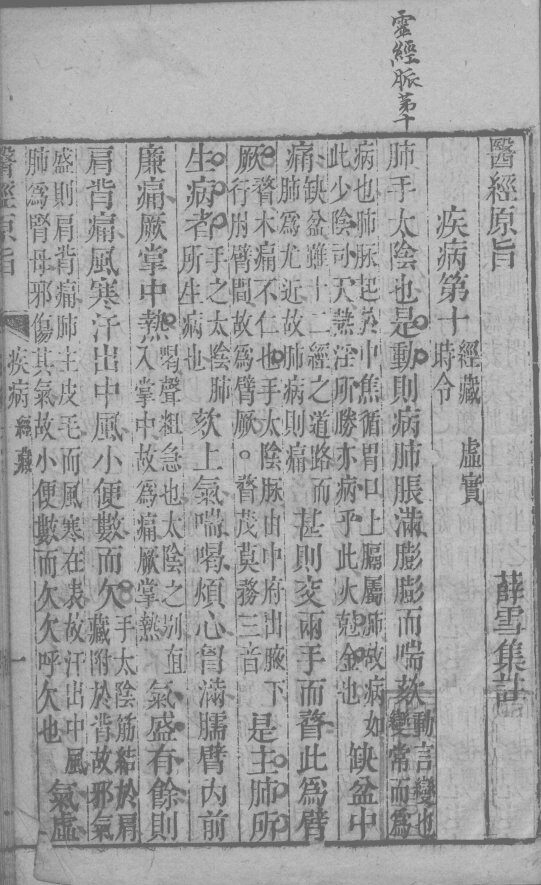 靈經脈第十
醫經原旨
疾病第十 經藏 虛實 時令 薛雪集註
肺手太陰也是動則病肺脹滿膨膨而喘欬 動言變也
變常而為
病也肺脈起於中焦循胃口上膈屬肺故病如
此少陰司天熱淫所勝亦病乎此火尅金也 缺盆中
痛 缺盆雖十二經之道路而
肺為尤近故肺病則痛 甚則交兩手而瞀此為臂
厥 瞀木痛不仁也手太陰脈由中府出腋下
行肘臂間故為臂厥。瞀茂莫務三音 是主肺所
生病者 手之太陰肺
所生病也 欬上氣喘喝煩心胷滿臑臂內前
廉痛厥掌中熱 喝聲粗急也太陰之別直
入掌中故為痛厥掌熱 氣盛有餘則
肩背痛風寒汗出中風小便數而欠 手太陰筋結於肩
藏附於背故邪氣
盛則肩背痛肺主皮毛而風寒在表故汗出中風
肺為腎母邪傷其氣故小便數而欠欠呼欠也 氣虛
醫經原旨 疾病 經藏 一